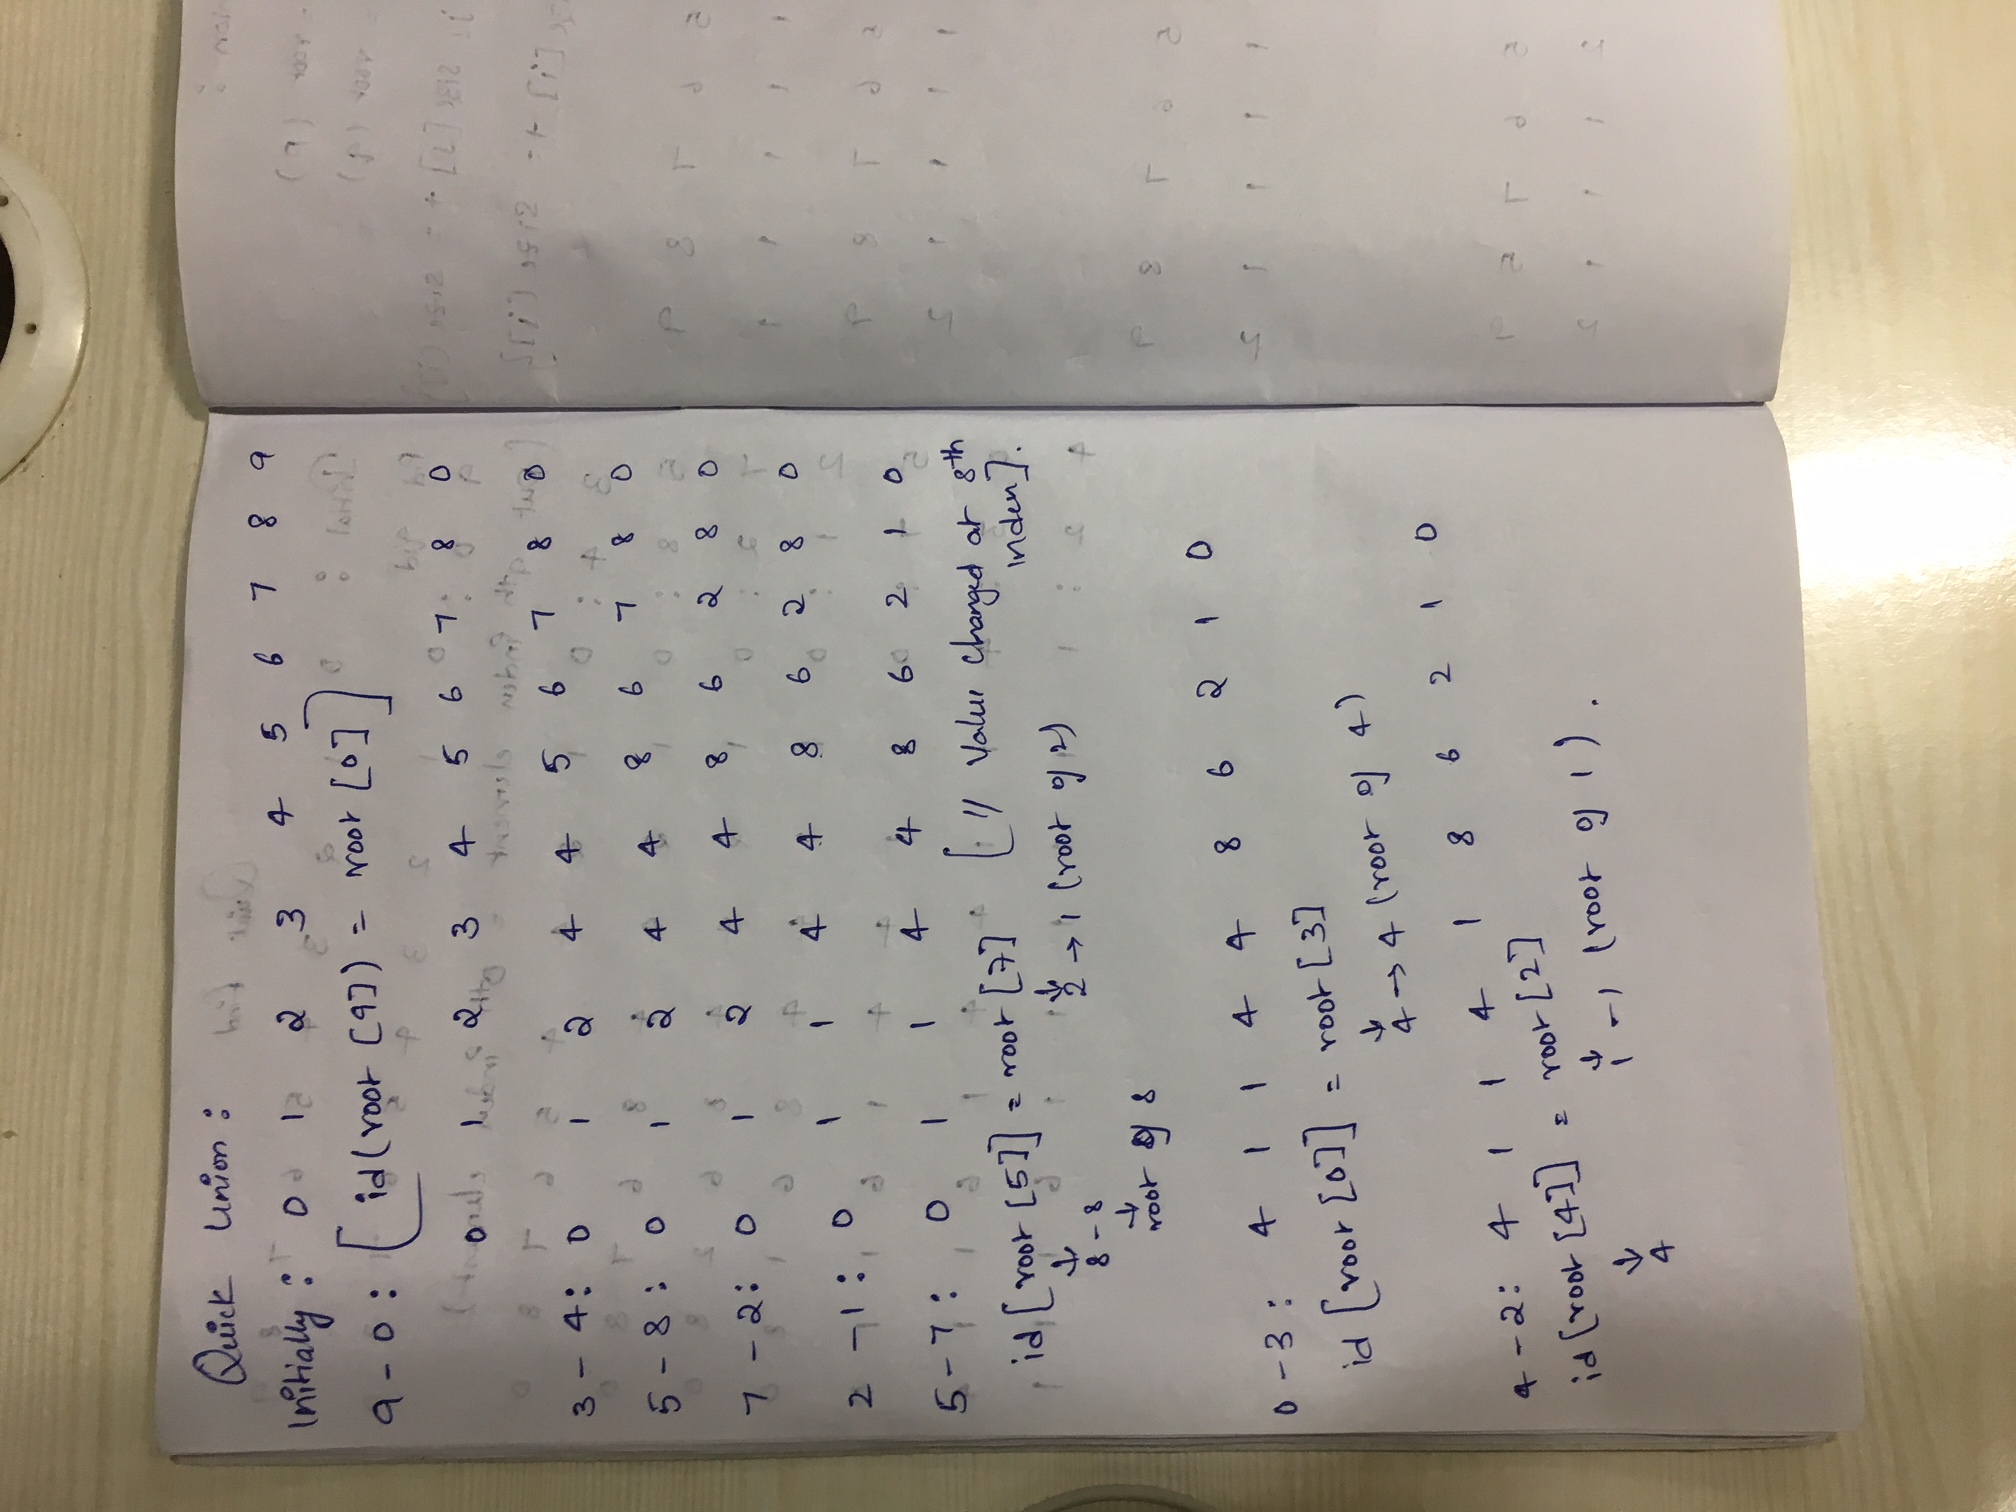 Quick Union :
Initially : 0 1 2 3 4 5 6 7 8 9
9 - 0 : [ id(root [9]) = root [0] ]
0 1 2 3 4 5 6 7 8 0
3 - 4 : 0 1 2 4 4 5 6 7 8 0
5 - 8 : 0 1 2 4 4 8 6 7 8 0
7 - 2 : 0 1 2 4 4 8 6 2 8 0
2 - 1 : 0 1 1 4 4 8 6 2 8 0
5 - 7 : 0 1 1 4 4 8 6 2 1 0
id [root [5]] = root [7] [ // Value changed at 8th
inden].
↓ ↓
8 - 8 2 → 1 (root of 2)
↓
root of 8
0 - 3 : 4 1 1 4 4 8 6 2 1 0
id [root [0]] = root [3]
↓
4 → 4 (root of 4)
4 - 2 : 4 1 1 4 1 8 6 2 1 0
id [root [4]] = root [2]
↓ ↓
4 1 - 1 (root of 1) .